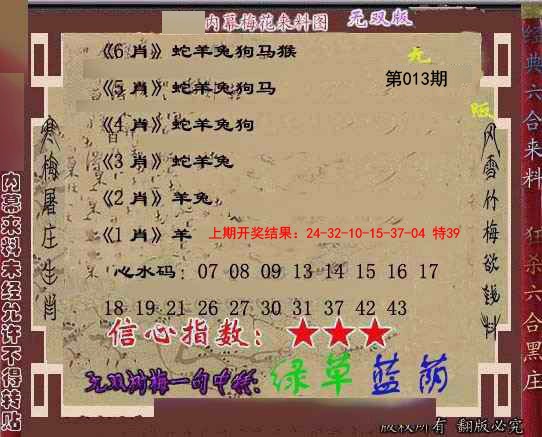 内幕梅花来料图 无双版
《6 肖》蛇羊兔狗马猴
《5 肖》蛇羊兔狗马
《4 肖》蛇羊兔狗
《3 肖》蛇羊兔
《2 肖》羊兔
《1 肖》羊
第013期
上期开奖结果：24-32-10-15-37-04 特39
心水码：07 08 09 13 14 15 16 17
18 19 21 26 27 30 31 37 42 43
信心指数：★★★
无双浏梅一句中特：绿草蓝荫
版权所有 翻版必究
寒梅屠庄生肖
风雪竹梅欲钱料
内幕来料未经允许不得转贴
经典六合来料 狂杀六合黑庄